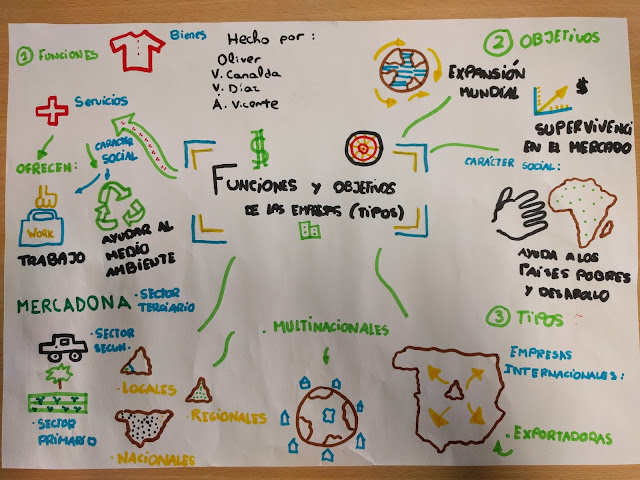 ① FUNCIONES
Bienes
Hecho por:
Oliver
V. Canalda
V. Díaz
A. Vicente
② OBJETIVOS
EXPANSIÓN
MUNDIAL
$
SUPERVIVENCI
EN EL MERCADO
Servicios
OFRECEN:
CARÁCTER
SOCIAL
WORK
TRABAJO
AYUDAR AL
MEDIO
AMBIENTE
$
FUNCIONES Y OBJETIVOS
DE LAS EMPRESAS (TIPOS)
CARÁCTER SOCIAL:
AYUDA A LOS
PAÍSES POBRES
Y DESAROLLO
MERCADONA
· SECTOR
TERCIARIO
· SECTOR
SECUN.
· SECTOR
PRIMARIO
· LOCALES
· REGIONALES
· NACIONALES
· MULTINACIONALES
③ TIPOS:
EMPRESAS
INTERNACIONALES:
· EXPORTADORAS